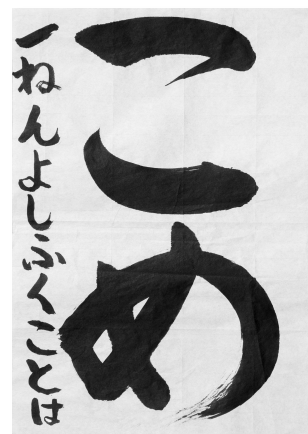 こめ
一ねんよしふくことは